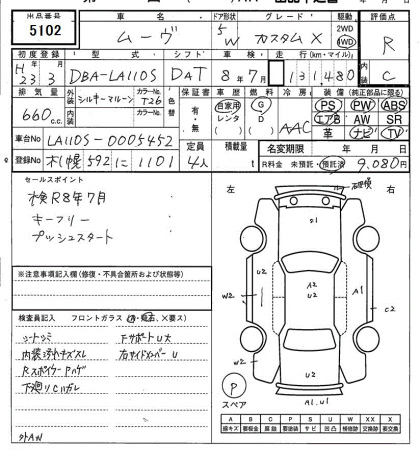 出品番号 5102
車名 ムーヴ
ドア形状 5 W
グレード カスタム X
駆動 2WD 4WD
評価点 R C
初度登録 H 23 3
型式 DBA-LA110S
シフト DAT
車検 8年7月
走行(km・マイル) 131,480
排気量 660 c.c.
外装 シルキーマルーン
カラーNo. T26
内装
カラーNo.
色替
保証書 有・無
車歴 自家用 レンタ
燃料 G D
冷房 AAC
装備(純正部品に限る)
PS PW ABS
エアB AW SR
革 ナビ TV
車台No LA110S-0005452
登録No 札幌 592 に 1101
定員 4人
積載量 t
名変期限 年 月 日
R料金 未預託・預託済 9,080円
セールスポイント
検R8年7月
キーフリー
プッシュスタート
※注意事項記入欄(修復・不具合箇所および状態等)
検査員記入
フロントガラス
シートシミ
内装汚れキズスレ
Rスポイラーハゲ
下廻りCハガレ
FサポートU大
右サイドメンバーU
外AW
左
右
S1
U2
U2
U2
W2
W2
A1
C2
A1.U1
P
スペア
A B C P S U W X XX
線キズ 腐蝕 要塗装 サビ 凹凸 補修跡 要交換 交換済